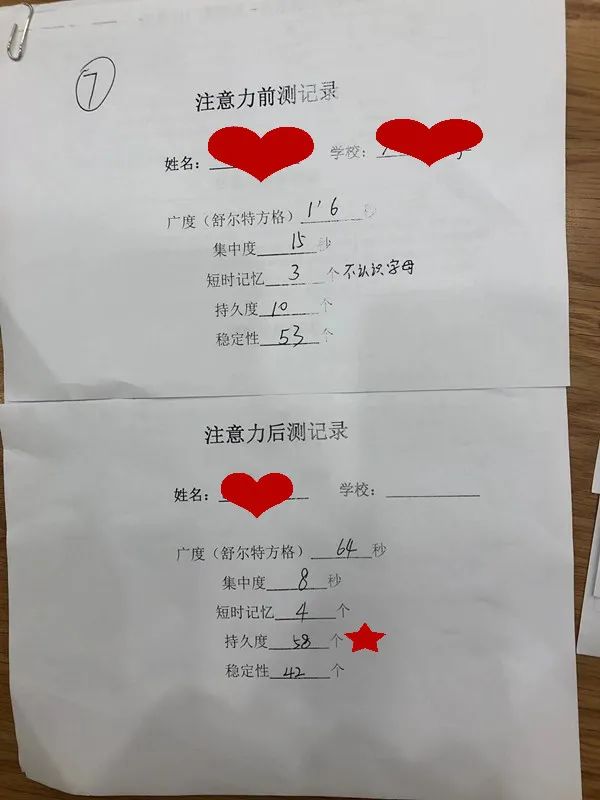 7
注意力前测记录
姓名： 学校：
广度（舒尔特方格）1'6秒
集中度 15 秒
短时记忆 3 个不认识字母
持久度 10 个
稳定性 53 个
注意力后测记录
姓名： 学校：
广度（舒尔特方格）64秒
集中度 8 秒
短时记忆 4 个
持久度 58 个
稳定性 42 个